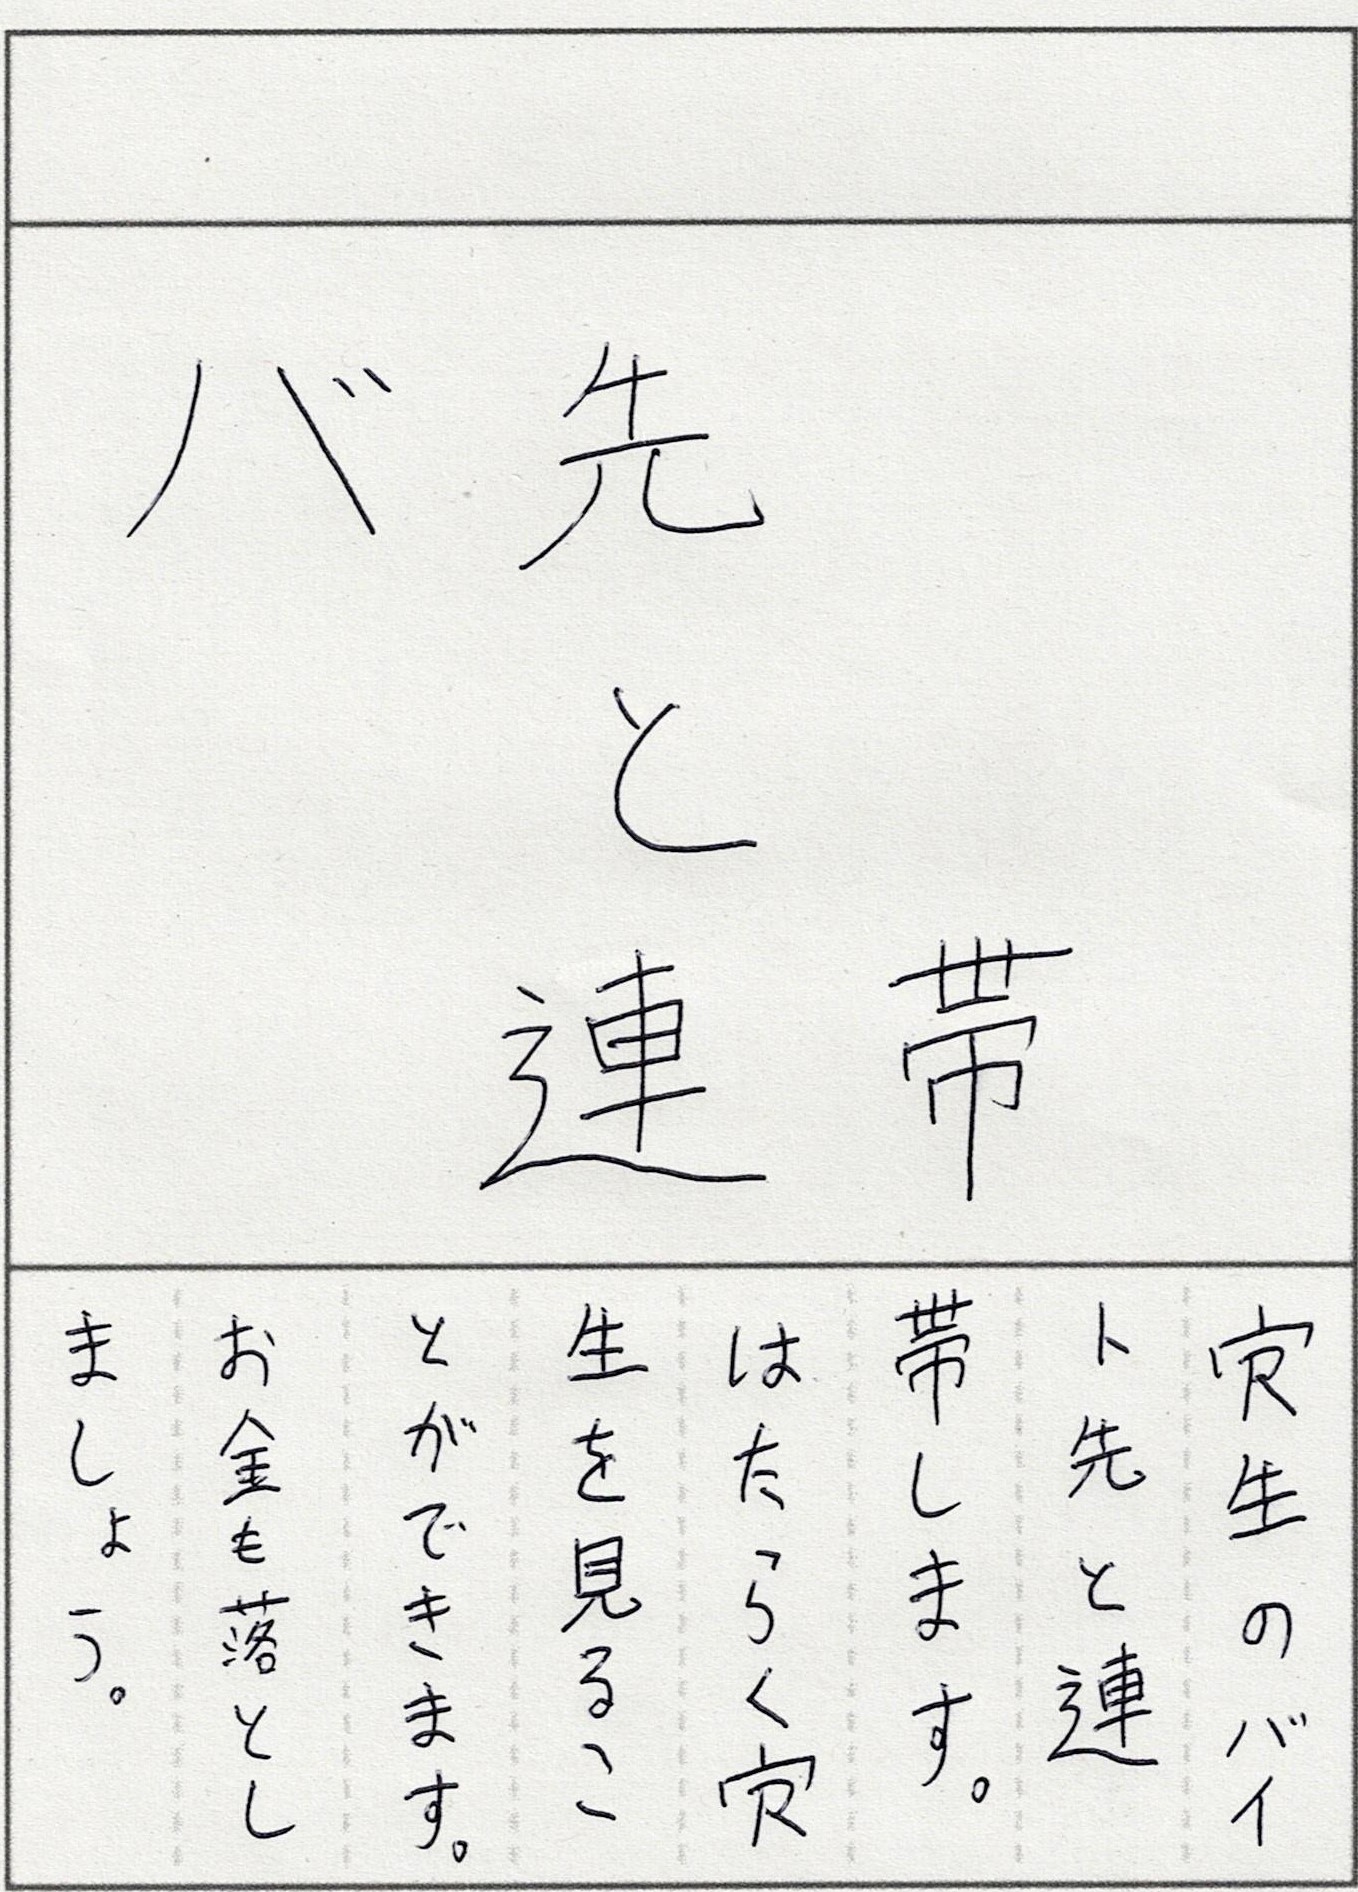 バ先
と
連帯
寮生のバイ
ト先と連
帯します。
はたらく寮
生を見るこ
とができます。
お金も落とし
ましょう。